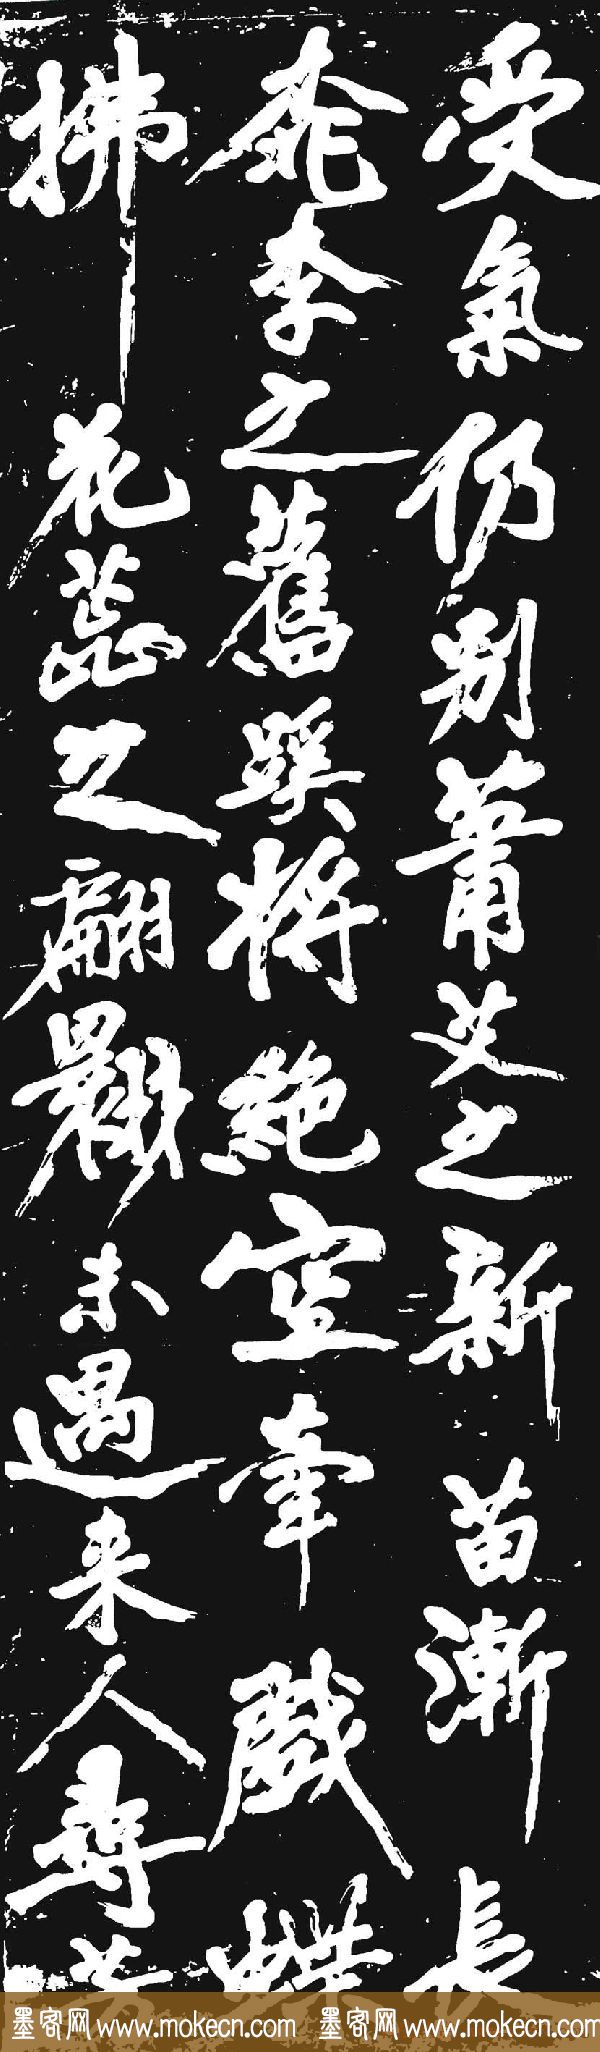 受氣仍别蕭艾之新苗漸長
桃李之舊蹊將絶空牽戲蝶
拂花蕊之翩翻未遇來人尋芳
墨客网 www.mokecn.com 墨客网 www.mokecn.com